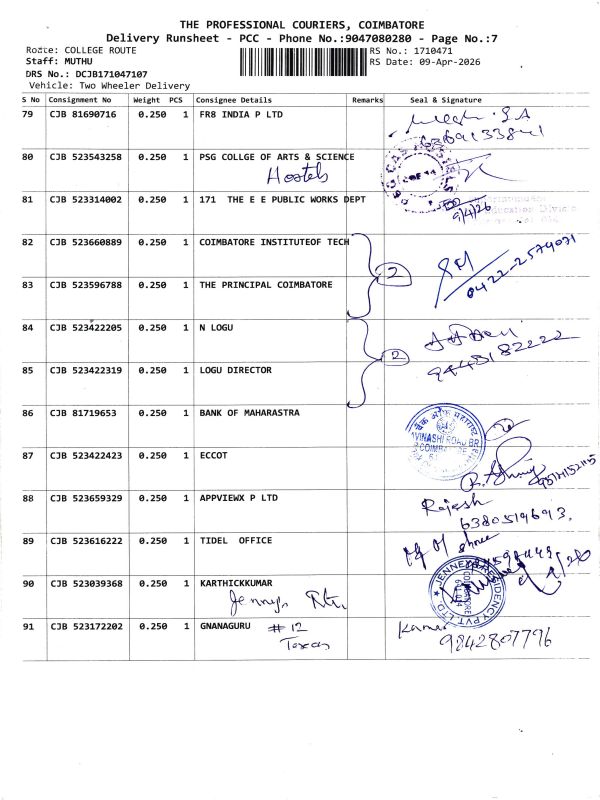 THE PROFESSIONAL COURIERS, COIMBATORE
Delivery Runsheet - PCC - Phone No.:9047080280 - Page No.:7
Route: COLLEGE ROUTE
RS No.: 1710471
Staff: MUTHU
RS Date: 09-Apr-2026
DRS No.: DCJB171047107
Vehicle: Two Wheeler Delivery
S No Consignment No Weight PCS Consignee Details Remarks Seal & Signature
79 CJB 81690716 0.250 1 FR8 INDIA P LTD
80 CJB 523543258 0.250 1 PSG COLLGE OF ARTS & SCIENCE
Hostels
81 CJB 523314002 0.250 1 171 THE E E PUBLIC WORKS DEPT
9/4/26
82 CJB 523660889 0.250 1 COIMBATORE INSTITUTEOF TECH
2
0422-2574071
83 CJB 523596788 0.250 1 THE PRINCIPAL COIMBATORE
84 CJB 523422205 0.250 1 N LOGU
2
9448182222
85 CJB 523422319 0.250 1 LOGU DIRECTOR
86 CJB 81719653 0.250 1 BANK OF MAHARASTRA
AVINASHI ROAD BR
COIMBATORE
87 CJB 523422423 0.250 1 ECCOT
88 CJB 523659329 0.250 1 APPVIEWX P LTD
Rajesh
6380519693.
89 CJB 523616222 0.250 1 TIDEL OFFICE
90 CJB 523039368 0.250 1 KARTHICKKUMAR
Jennys
JENNEYS RESIDENCY PVT. LTD
COIMBATORE
91 CJB 523172202 0.250 1 GNANAGURU #12
Texas
9842807796